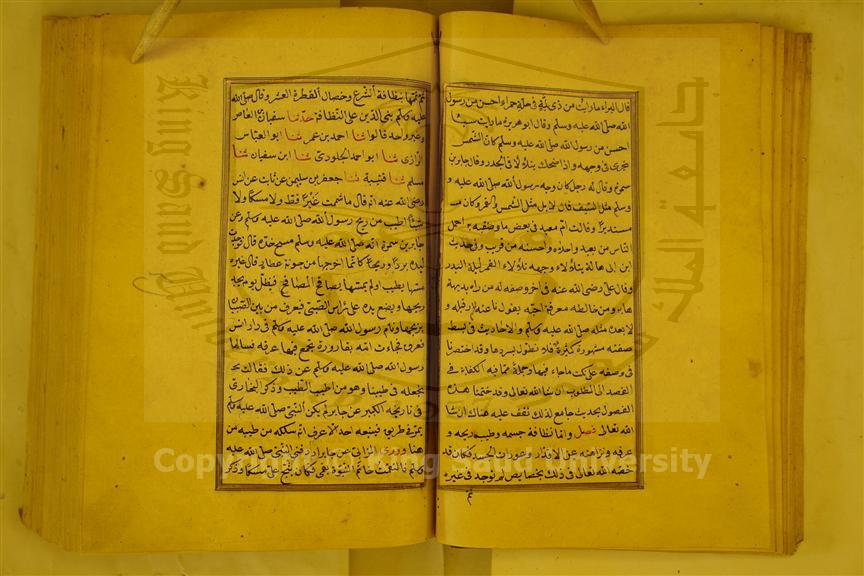 قال البراء ما رأيت من ذى لمة فى حلة حمراء احسن من رسول
الله صلى الله عليه وسلم وقال ابو هريرة ما رأيت شيئا
احسن من رسول الله صلى الله عليه وسلم كان الشمس
تجرى فى وجهه واذا ضحك يتلألأ فى الجدر وقال جابر بن
سمرة وقال له رجل كان وجه رسول الله صلى الله عليه و
وسلم مثل السيف فقال لا بل مثل الشمس والقمر وكان مـ
مستديرا وقالت ام معبد فى بعض ما وصفته به اجمل
الناس من بعيد واحلاه واحسنه من قريب وفى حديث
ابن ابى هالة يتلألأ وجهه تلألأ القمر ليلة البدر
وقال على رضى الله عنه فى آخر وصفه له من رآه بديهة
هابه ومن خالطه معرفة احبه يقول ناعته لم ار قبله و
لا بعده مثله صلى الله عليه وسلم والاحاديث فى بسط
صفته مشهورة كثيرة فلا نطول بسردها وقد اختصرنا
فى وصفه نكت ما جاء فيها وجملة مما فيه الكفاية فى
القصد الى المطلوب ان شا الله تعالى وقد ختمنا هذه
الفصول بحديث جامع لذلك نقف عليه هناك ان شا
الله تعالى فصل واما نظافة جسمه وطيب ريحه و
عرقه ونزاهته عن الاقذار وعورات الجسد فكان قد
خصه الله تعالى فى ذلك بخصايص لم توجد فى غيره
ثم
ثم تممها بنظافة الشرع وخصال الفطرة العشر وقال صلى الله
عليه وسلم بنى الدين على النظافة حدثنا سفيان بن العاص
وغير واحد قالوا ثنا احمد بن عمر ثنا ابو العباس
الرازى ثنا ابو احمد الجلودى ثنا ابن سفيان ثنا
مسلم ثنا قتيبة ثنا جعفر بن سليمن عن ثابت عن انس
رضى الله عنه انه قال ما شممت عنبرا قط ولا مسكا ولا
شيئا اطيب من ريح رسول الله صلى الله عليه وسلم وعن
جابر بن سمرة انه صلى الله عليه وسلم مسح خده قال فوجدت
ليده بردا وريحا كانما اخرجها من جونة عطار قال غيره
مسها بطيب او لم يمسها يصافح المصافح فيظل يومه يجد
ريحها ويضع يده على رأس الصبى فيعرف من بين الصبيان
بريحها ونام رسول الله صلى الله عليه وسلم فى دار انس
فعرق فجاءت امه بقارورة تجمع فيها عرقه فسألها
رسول الله صلى الله عليه وسلم عن ذلك فقالت
نجعله فى طيبنا وهو من اطيب الطيب وذكر البخارى
فى تاريخه الكبير عن جابر لم يكن النبى صلى الله عليه وسلم
يمر فى طريق فيتبعه احد الا عرف انه سلكه من طيبه من
هنا وروى المزنى عن جابر اردفنى النبى صلى الله عليه
وسلم فالتقمت خاتم النبوة بفمى فكان ينم على مسكا وذكر
Copyright © King Saud University
King Saud University
جامعة الملك